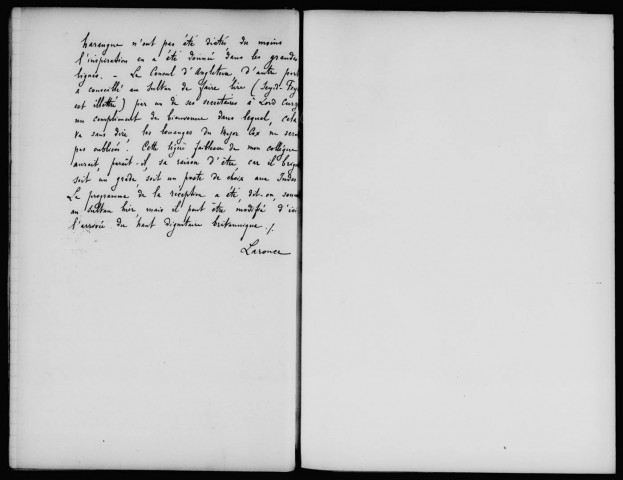 harangue n'ont pas été dictés du moins
l'inspiration en a été donnée dans les grandes
lignes. - Le Consul d'Angleterre d'autre part
a conseillé au Sultan de faire lire (Seyid-Fey
est illettré) par un de ses secrétaires à Lord Curz
un compliment de bienvenue dans lequel, cela
va sans dire, les louanges du Major Cox ne sero
pas oubliées. Cette légère faiblesse de mon collègue
aurait, paraît-il, sa raison d'être car il brigue
soit un grade, soit un poste de choix aux Indes
Le programme de la réception a été dit-on, soum
au Sultan hier mais il peut être modifié d'ici
l'arrivée du haut dignitaire britannique ./.
Laronce